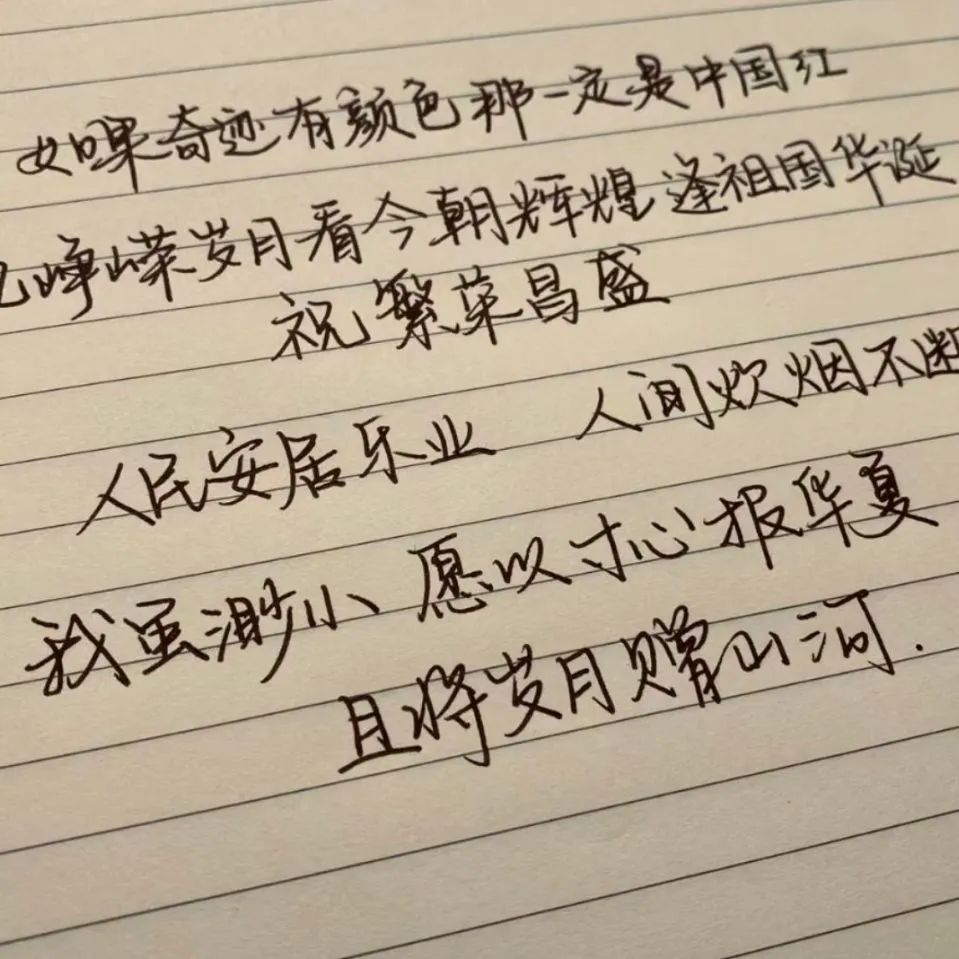 如果奇迹有颜色那一定是中国红
忆峥嵘岁月看今朝辉煌逢祖国华诞
祝繁荣昌盛
人民安居乐业 人间炊烟不断
我虽渺小、愿以寸心报华夏
且将岁月赠山河.